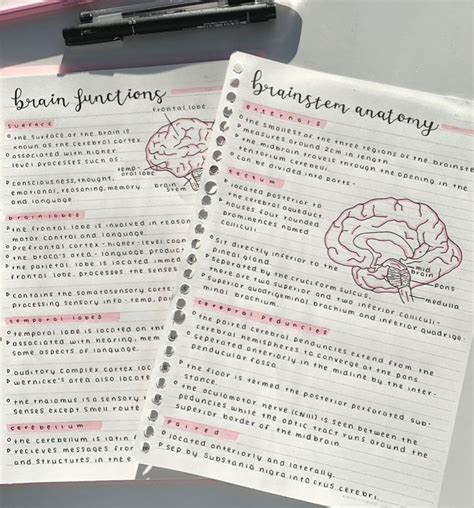 brain functions
frontal lobe
surface
the surface of the brain is
known as the cerebral cortex
associated with higher
level processes such as:
consciousness, thought,
emotional, reasoning, memory
and language
temp-
oral lobe
brain
stem
brain lobes
the frontal lobe is involved in reason
motor control and language
prefrontal cortex - higher-level
the broca's area - language
the parietal lobe is located
frontal lobe, processes the
contains the somatosensory
processing sensory info -
temporal lobes
temporal lobe is located on the
associated with hearing,
some aspects of language
auditory complex cortex
wernicke's area also
the thalamus is a sensory
senses except smell route
cerebellum
the cerebellum is latin
recieves messages from
and structures in the
brainstem anatomy
externals
the smallest of the three regions of the brainste
measures around 2cm in length.
the midbrain travels through the opening in the
tentorium cerebelli
can be divided into parts -
tectum
located posterior to
the cerebral aqueduct
houses four rounded
prominences named
colliculi
mid
pons
medulla
sit directly inferior to the
pineal gland
seperated by the cruciform sulcus.
there are two superior and two inferior colliculi-
superior quadrigeminal brachium and inferior quadrige
minal brachium.
cerebral peduncles
the paired cerebral peduncles extend from the
cerebral hemispheres to converge at the pons.
seperated anteriorly in the midline by the inter-
peduncular fossa
the floor is termed posterior perforated sub-
stance.
the oculomotor nerve (CNIII) is seen between the
peduncles while the optic tract runs around the
superior border of the midbrain.
paired
located anteriorly and laterally.
sep by substania nigra into crus cerebri.